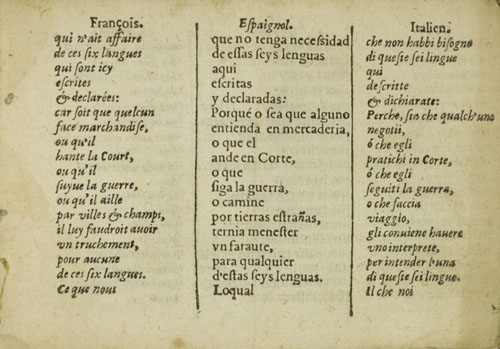 François.
qui n'ait affaire
de ces six langues
qui sont icy
escrites
& declarées:
car soit que quelcun
face marchandise,
ou qu'il
hante la Court,
ou qu'il
suyue la guerre,
ou qu'il aille
par villes & champs,
il luy faudroit auoir
vn truchement,
pour aucune
de ces six langues.
Ce que nous
Espaignol.
que no tenga necessidad
de essas seys lenguas
aqui
escritas
y declaradas:
Porqué o sea que alguno
entienda en mercaderia,
o que el
ande en Corte,
o que
siga la guerra,
o camine
por tierras estrañas,
ternia menester
vn faraute,
para qualquier
d'estas seys lenguas.
Loqual
Italien.
che non habbi bisogno
di queste sei lingue
qui
descritte
& dichiarate:
Perche, sia che qualch'uno
negotii,
ó che egli
pratichi in Corte,
ó che egli
seguiti la guerra,
o che faccia
viaggio,
gli conuiene hauere
vno interprete,
per intender l'una
di queste sei lingue.
Il che noi